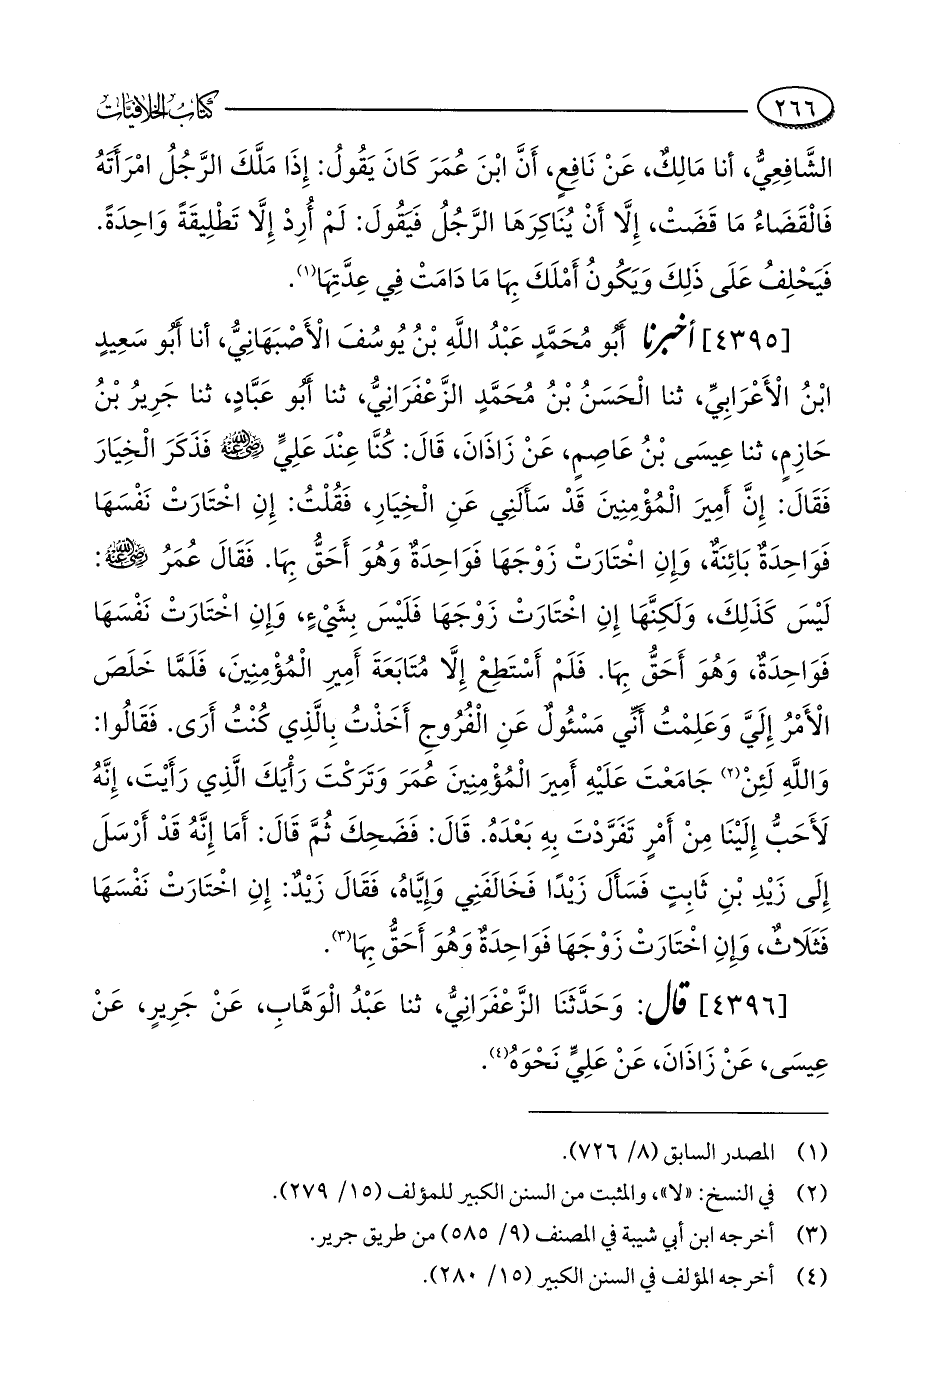 ٢٦٦ كتاب الخلافيات
الشَّافِعِيُّ، أنا مَالِكٌ، عَنْ نَافِعٍ، أَنَّ ابْنَ عُمَرَ كَانَ يَقُولُ: إِذَا مَلَّكَ الرَّجُلُ امْرَأَتَهُ
فَالْقَضَاءُ مَا قَضَتْ، إِلَّا أَنْ يُنَاكِرَهَا الرَّجُلُ فَيَقُولَ: لَمْ أُرِدْ إِلَّا تَطْلِيقَةً وَاحِدَةً.
فَيَحْلِفُ عَلَى ذَلِكَ وَيَكُونُ أَمْلَكَ بِهَا مَا دَامَتْ فِي عِدَّتِهَا(١).
[٤٣٩٥] أخبرنا أَبُو مُحَمَّدٍ عَبْدُ اللَّهِ بْنُ يُوسُفَ الْأَصْبَهَانِيُّ، أنا أَبُو سَعِيدٍ
ابْنُ الْأَعْرَابِيِّ، ثنا الْحَسَنُ بْنُ مُحَمَّدٍ الزَّعْفَرَانِيُّ، ثنا أَبُو عَبَّادٍ، ثنا جَرِيرُ بْنُ
حَازِمٍ، ثنا عِيسَى بْنُ عَاصِمٍ، عَنْ زَاذَانَ، قَالَ: كُنَّا عِنْدَ عَلِيٍّ رضي الله عنه فَذَكَرَ الْخِيَارَ
فَقَالَ: إِنَّ أَمِيرَ الْمُؤْمِنِينَ قَدْ سَأَلَنِي عَنِ الْخِيَارِ، فَقُلْتُ: إِنِ اخْتَارَتْ نَفْسَهَا
فَوَاحِدَةٌ بَائِنَةٌ، وَإِنِ اخْتَارَتْ زَوْجَهَا فَوَاحِدَةٌ وَهُوَ أَحَقُّ بِهَا. فَقَالَ عُمَرُ رضي الله عنه:
لَيْسَ كَذَلِكَ، وَلَكِنَّهَا إِنِ اخْتَارَتْ زَوْجَهَا فَلَيْسَ بِشَيْءٍ، وَإِنِ اخْتَارَتْ نَفْسَهَا
فَوَاحِدَةٌ، وَهُوَ أَحَقُّ بِهَا. فَلَمْ أَسْتَطِعْ إِلَّا مُتَابَعَةَ أَمِيرِ الْمُؤْمِنِينَ، فَلَمَّا خَلَصَ
الْأَمْرُ إِلَيَّ وَعَلِمْتُ أَنِّي مَسْئُولٌ عَنِ الْفُرُوجِ أَخَذْتُ بِالَّذِي كُنْتُ أَرَى. فَقَالُوا:
وَاللَّهِ لَئِنْ(٢) جَامَعْتَ عَلَيْهِ أَمِيرَ الْمُؤْمِنِينَ عُمَرَ وَتَرَكْتَ رَأْيَكَ الَّذِي رَأَيْتَ، إِنَّهُ
لَأَحَبُّ إِلَيْنَا مِنْ أَمْرٍ تَفَرَّدْتَ بِهِ بَعْدَهُ. قَالَ: فَضَحِكَ ثُمَّ قَالَ: أَمَا إِنَّهُ قَدْ أَرْسَلَ
إِلَى زَيْدِ بْنِ ثَابِتٍ فَسَأَلَ زَيْدًا فَخَالَفَنِي وَإِيَّاهُ، فَقَالَ زَيْدٌ: إِنِ اخْتَارَتْ نَفْسَهَا
فَثَلَاثٌ، وَإِنِ اخْتَارَتْ زَوْجَهَا فَوَاحِدَةٌ وَهُوَ أَحَقُّ بِهَا(٣).
[٤٣٩٦] قال: وَحَدَّثَنَا الزَّعْفَرَانِيُّ، ثنا عَبْدُ الْوَهَّابِ، عَنْ جَرِيرٍ، عَنْ
عِيسَى، عَنْ زَاذَانَ، عَنْ عَلِيٍّ نَحْوَهُ(٤).
(١) المصدر السابق (٨/ ٧٢٦).
(٢) في النسخ: «لا»، والمثبت من السنن الكبير للمؤلف (١٥/ ٢٧٩).
(٣) أخرجه ابن أبي شيبة في المصنف (٩/ ٥٨٥) من طريق جرير.
(٤) أخرجه المؤلف في السنن الكبير (١٥/ ٢٨٠).